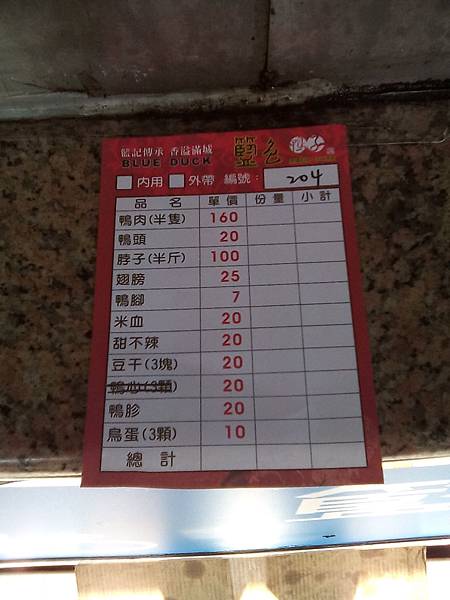 籃記傳承 香溢滿城
BLUE DUCK
藍色
內用 外帶 編號: 204
品名 單價 份量 小計
鴨肉(半隻) 160
鴨頭 20
脖子(半斤) 100
翅膀 25
鴨腳 7
米血 20
甜不辣 20
豆干(3塊) 20
鴨心(3顆) 20
鴨胗 20
鳥蛋(3顆) 10
總計